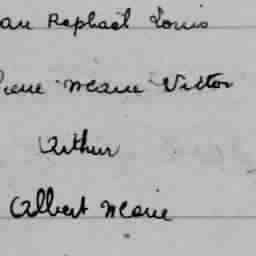 Raphaël Louis
Pierre Marie Victor
Arthur
Albert Marie